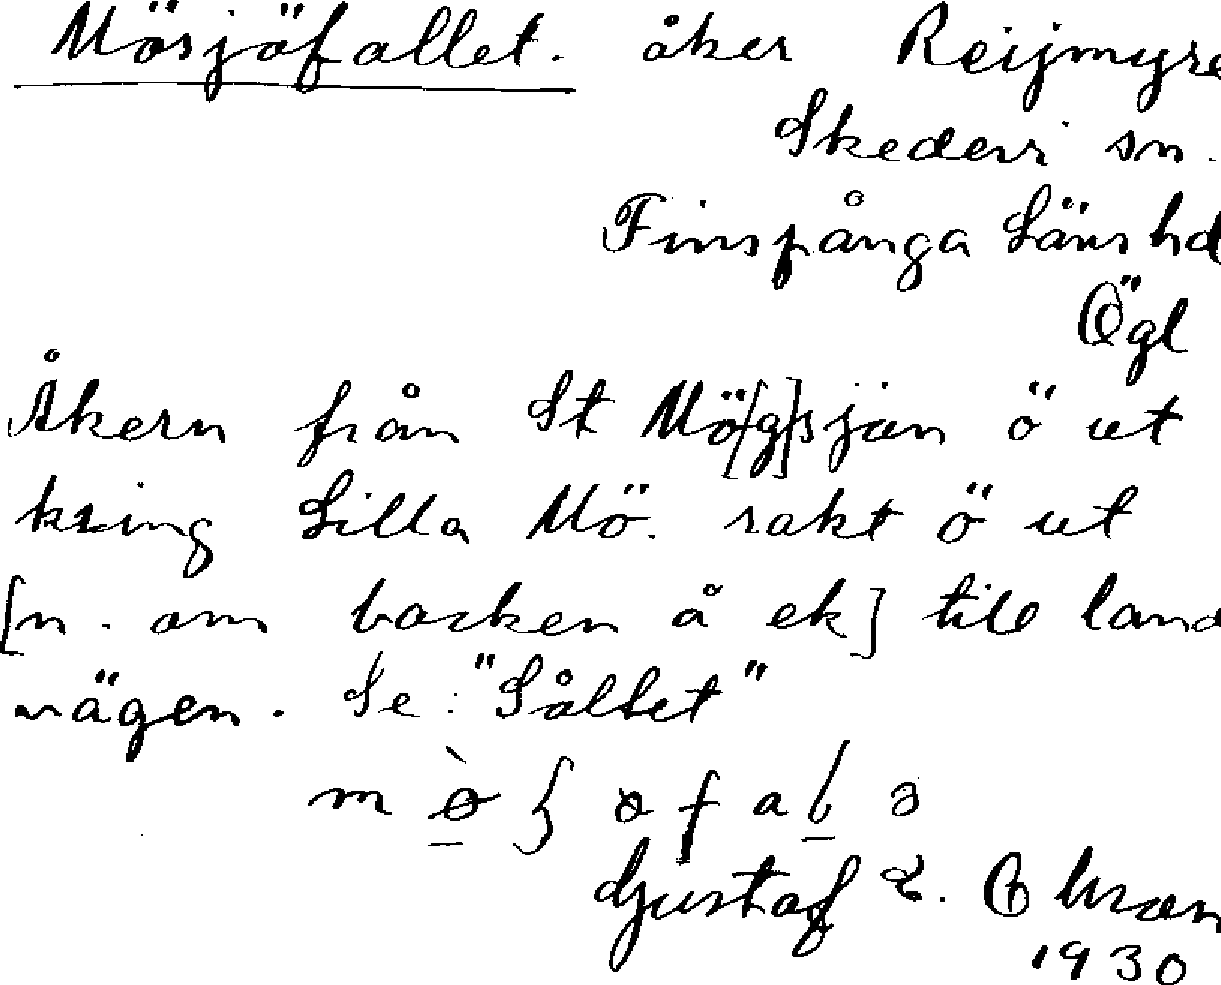 Mösjöfallet. åker Reijmyre
Skedevi sn.
Finspånga Läns hd
Ögl
Åkern från St Mö[g]sjön ö ut
kring Lilla Mö. rakt ö ut
[n. om backen å ek] till land
vägen. Se: "Såltet"
Gustaf E.
1930